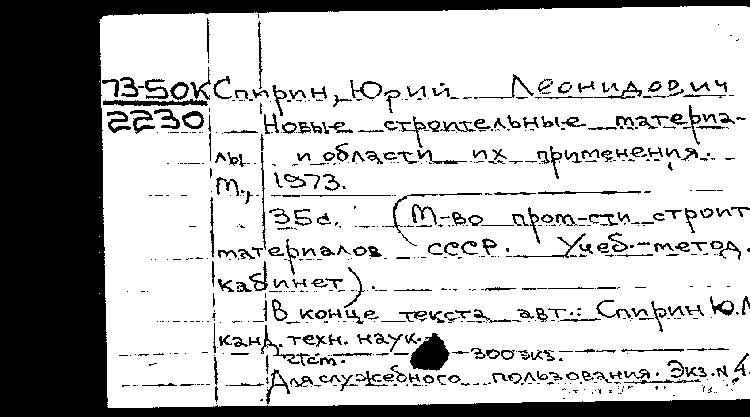 73-50К Спирин, Юрий Леонидович
2230 Новые строительные материа-
лы и области их применения.
М., 1973.
35с. (М-во пром-сти строит
материалов СССР. Учеб.-метод.
кабинет).
В конце текста авт.: Спирин Ю.Л
канд. техн. наук.
300 экз.
Для служебного пользования. Экз. № 4.